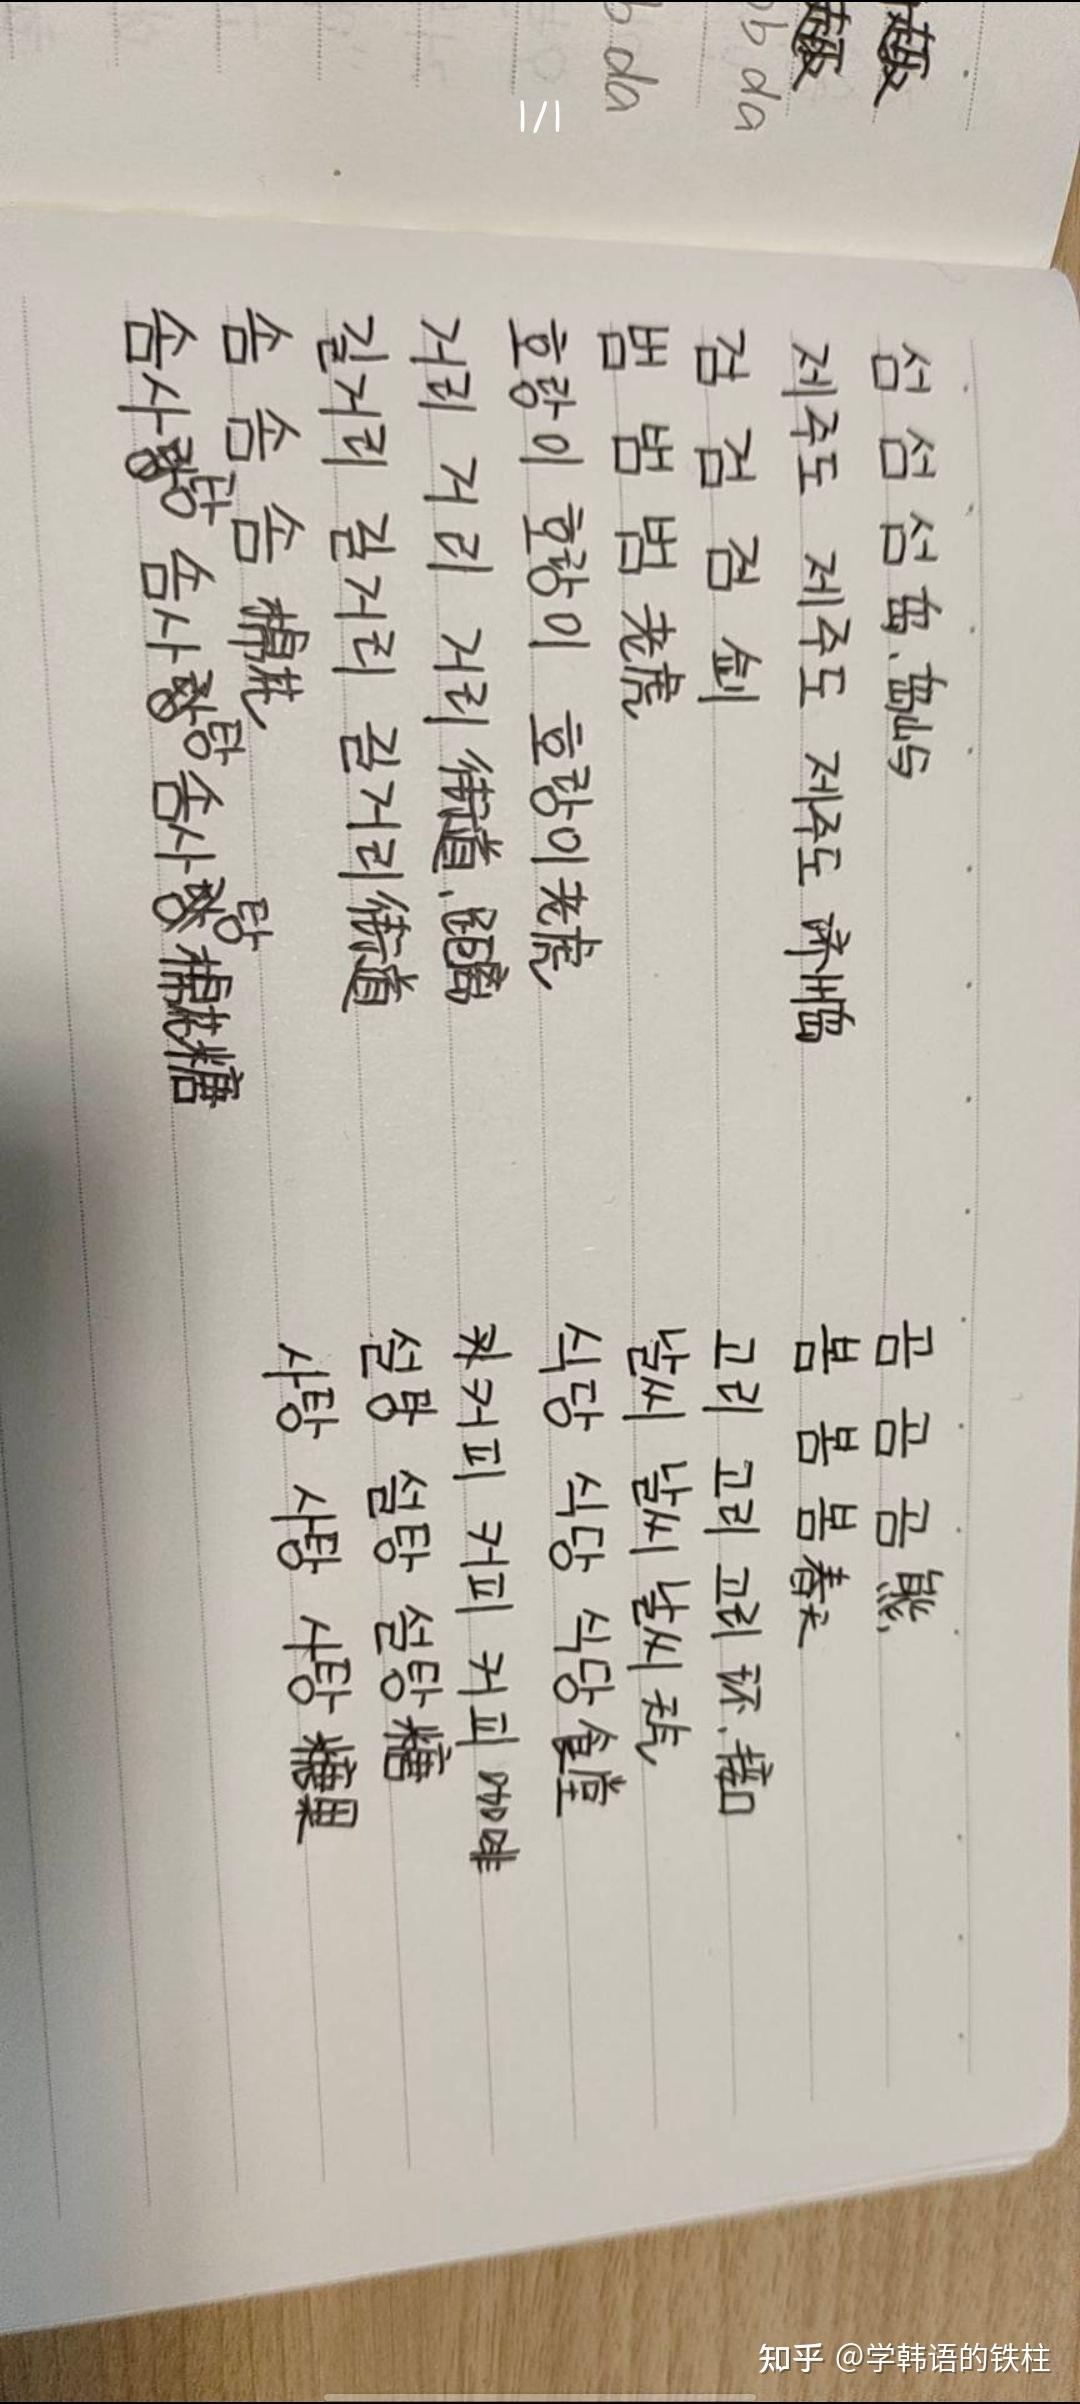 1/1
b da
ob da
섬 섬 섬 岛、岛屿
제주도 제주도 제주도 济州岛
검 검 검 剑
범 범 범 老虎
호랑이 호랑이 호랑이 老虎
거리 거리 거리 街道、距离
길거리 길거리 길거리 街道
솜 솜 솜 棉花
솜사탕 솜사탕 솜사탕 棉花糖
곰 곰 곰 熊
봄 봄 봄 春天
고리 고리 고리 环、
날씨 날씨 날씨
식당 식당 식당 食堂
커피 커피 커피 咖啡
설탕 설탕 설탕 糖
사탕 사탕 사탕 糖果
知乎 @学韩语的铁柱